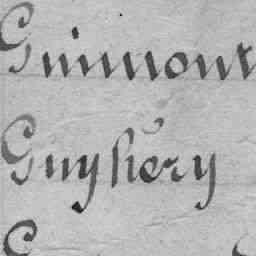 Guimont
Guyhéry